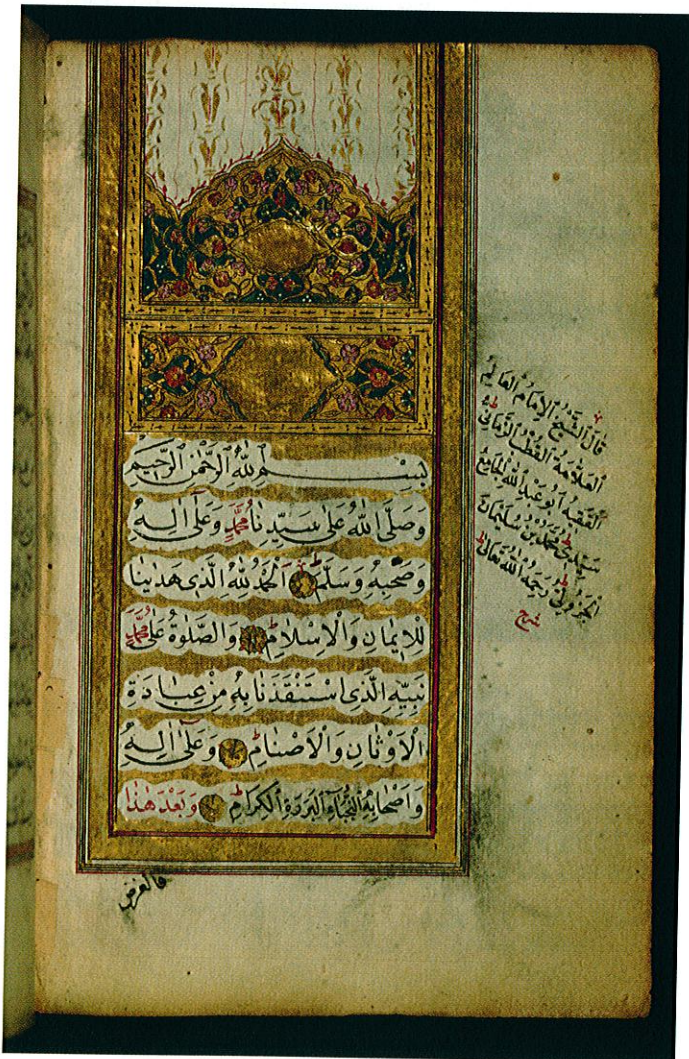 بِسْمِ اللهِ الرَّحْمٰنِ الرَّحِيمِ
وَصَلَّى اللهُ عَلٰى سَيِّدِنَا مُحَمَّدٍ وَعَلٰٓى اٰلِهٖ
وَصَحْبِهٖ وَسَلَّمَ اَلْحَمْدُ لِلّٰهِ الَّذِى هَدٰينَا
لِلْاِيمَانِ وَالْاِسْلَامِ وَالصَّلٰوةُ عَلٰى مُحَمَّدٍ
نَبِيِّهِ الَّذِى اسْتَنْقَذَنَا بِهٖ مِنْ عِبَادَةِ
الْاَوْثَانِ وَالْاَصْنَامِ وَعَلٰٓى اٰلِهٖ
وَاَصْحَابِهِ النُّجَبَاءِ الْبَرَرَةِ الْكِرَامِ وَبَعْدَ هٰذَا
فالغرض
قَالَ الشَّيْخُ الْاِمَامُ الْعَالِمُ
الْعَلَّامَةُ الْقُطْبُ الرَّبَّانِىُّ
الْفَقِيهُ اَبُو عَبْدِ اللهِ الْجَامِعُ
سَيِّدِى مُحَمَّدُ بْنُ سُلَيْمَانَ
الْجَزُولِىُّ رَحِمَهُ اللهُ تَعَالٰى
شرح